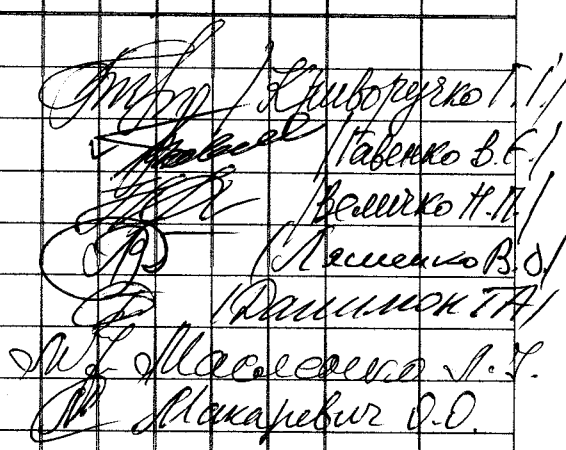 /Криворучко Г.І./
/Павенко В.Є./
/Величко Н.П./
/Ляшенко В.О/
/Данимон Т А/
Масленко Л.І.
Макаревич О.О.